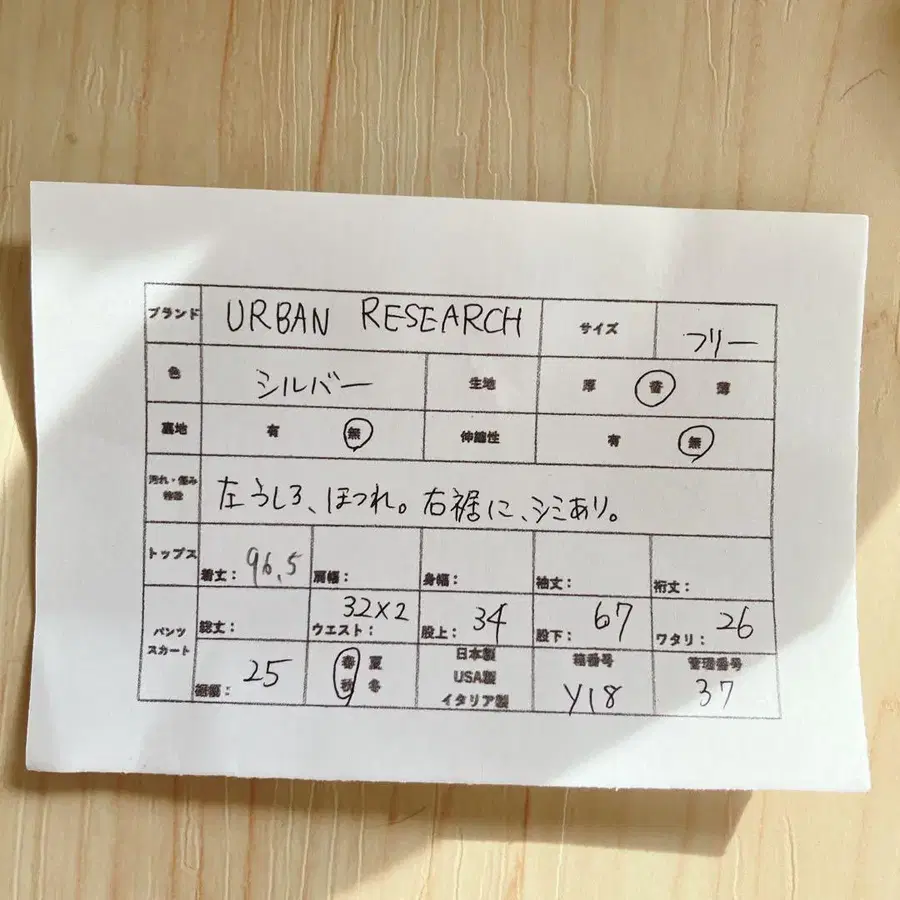 ブランド URBAN RESEARCH サイズ フリー
色 シルバー 生地 厚 普 薄
裏地 有 無 伸縮性 有 無
汚れ・傷み
左うしろ、ほつれ。右裾に、シミあり。
トップス 着丈: 96.5 肩幅: 身幅: 袖丈: 裄丈:
パンツ スカート 総丈: ウエスト: 32×2 股上: 34 股下: 67 ワタリ: 26
裾幅: 25 春 夏 秋 冬 日本製 USA製 イタリア製 箱番号 Y18 管理番号 37